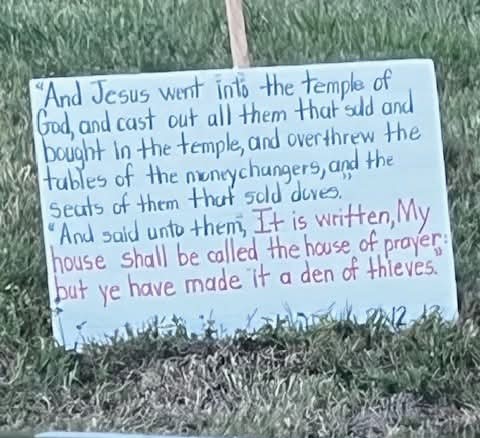 "And Jesus went into the temple of
God, and cast out all them that sold and
bought in the temple, and overthrew the
tables of the moneychangers, and the
seats of them that sold doves."
"And said unto them, It is written, My
house shall be called the house of prayer:
but ye have made it a den of thieves."
12, 13